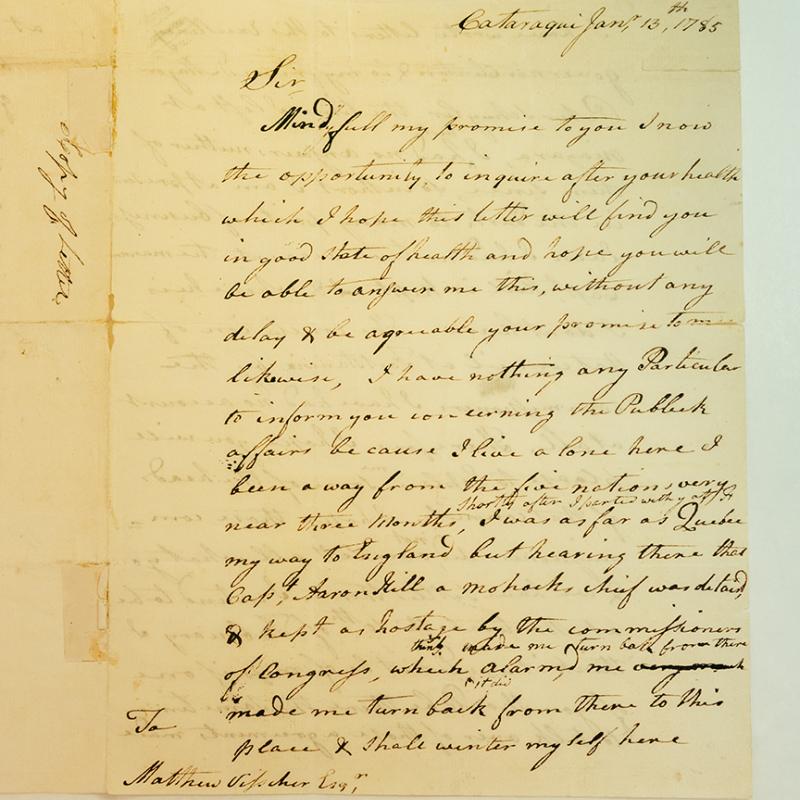 Cataraqui Janr. 13th, 1785
Sir
Mindfull my promise to you I now
the opportunity, to inquire after your health
which I hope this letter will find you
in good state of health and hope you will
be able to answer me this, without any
delay & be agreable your promise to me
likewise, I have nothing any Particular
to inform you concerning the Publeck
affairs because I live a lone here I
been a way from the five nations very
shortly after I parted with y at F. S
near three Months, I was as far as Quebec
my way to England but hearing there that
Capt. Aaron Hill a mohocks chief was detaind,
& kept as hostage by the commissioners
made me turn back from there
of Congress, which alarmd me very much
it did
made me turn back from there to this
place & shall winter myself here
To
Matthew Visscher Esqr,
Copy of letter